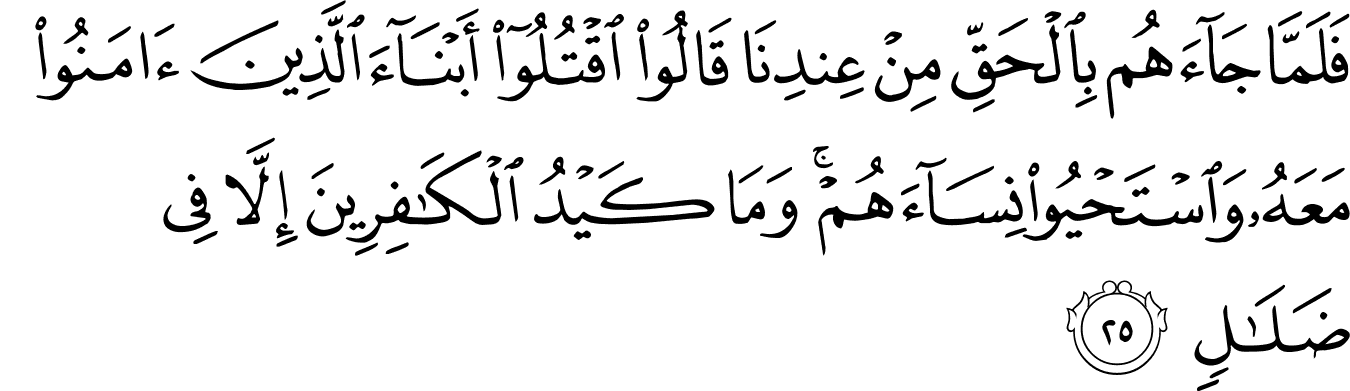 فَلَمَّا جَآءَهُم بِٱلْحَقِّ مِنْ عِندِنَا قَالُوا۟ ٱقْتُلُوٓا۟ أَبْنَآءَ ٱلَّذِينَ ءَامَنُوا۟
مَعَهُۥ وَٱسْتَحْيُوا۟ نِسَآءَهُمْ ۚ وَمَا كَيْدُ ٱلْكَٰفِرِينَ إِلَّا فِى
ضَلَٰلٍ ٢٥